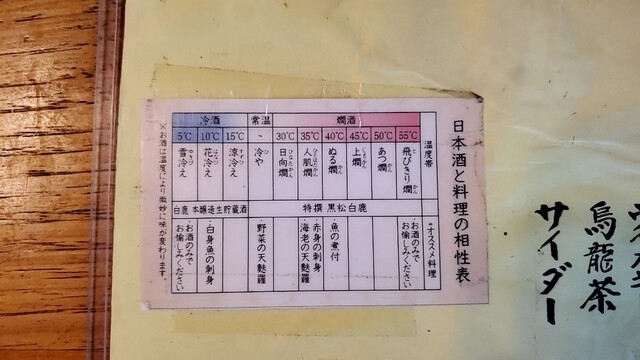 日本酒と料理の相性表
冷酒 常温 燗酒
5℃ 10℃ 15℃ ~ 30℃ 35℃ 40℃ 45℃ 50℃ 55℃ 温度帯
雪冷え 花冷え 涼冷え 冷や 日向燗 人肌燗 ぬる燗 上燗 あつ燗 飛びきり燗
白鹿 本醸造生貯蔵酒 特撰 黒松白鹿
・お酒のみでお愉しみください
・白身魚の刺身
・野菜の天麩羅
・赤身の刺身
・海老の天麩羅
・魚の煮付
・お酒のみでお愉しみください
*オススメ料理
※お酒は温度により微妙に味が変わります。
烏龍茶
サイダー